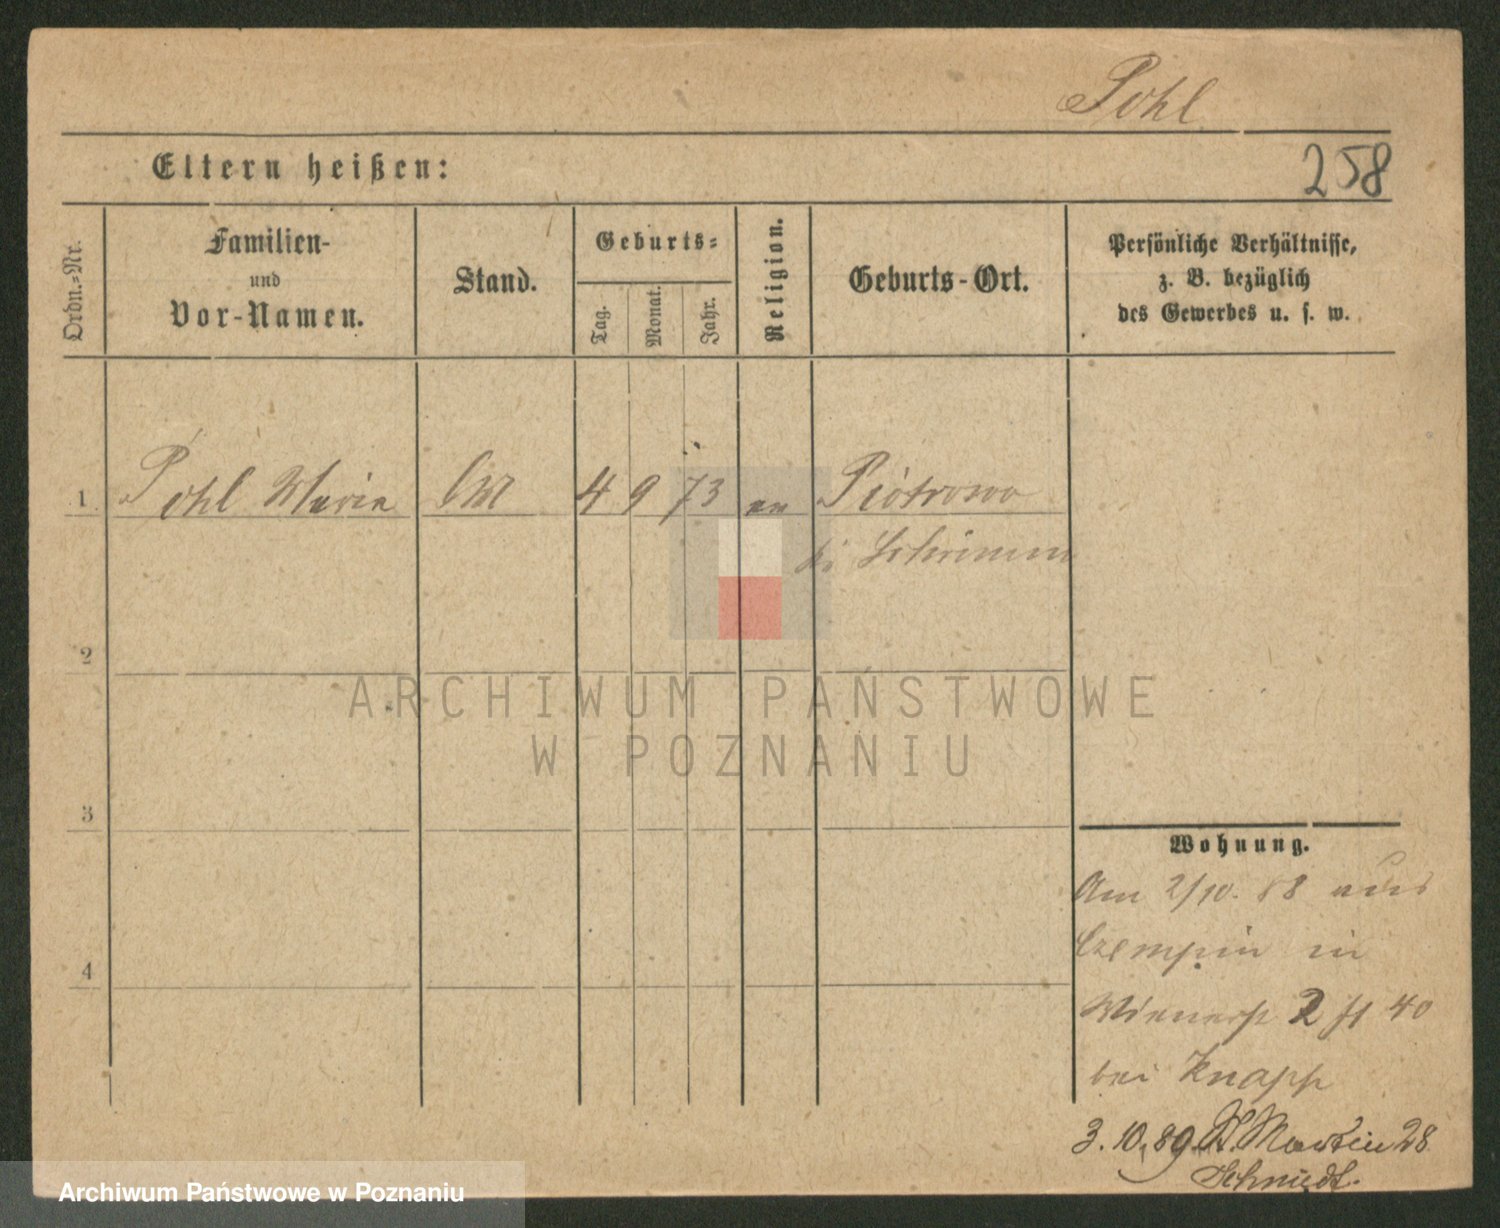 Pohl
Eltern heißen:
258
Ordn.-Nr.
Familien-
und
Vor-Namen.
Stand.
Geburts-
Tag.
Monat.
Jahr.
Religion.
Geburts-Ort.
Persönliche Verhältnisse,
z. B. bezüglich
des Gewerbes u. s. w.
1 Pohl Maria 4 9 73 Piotrowo
bei Schrimm
2
3
4
Wohnung.
Am 2/10. 88 aus
Czempin in
Wienerst 2 40
bei Knapp
3. 10. 89 St. Martin 28
Schmidt.
ARCHIWUM PAŃSTWOWE
W POZNANIU
Archiwum Państwowe w Poznaniu